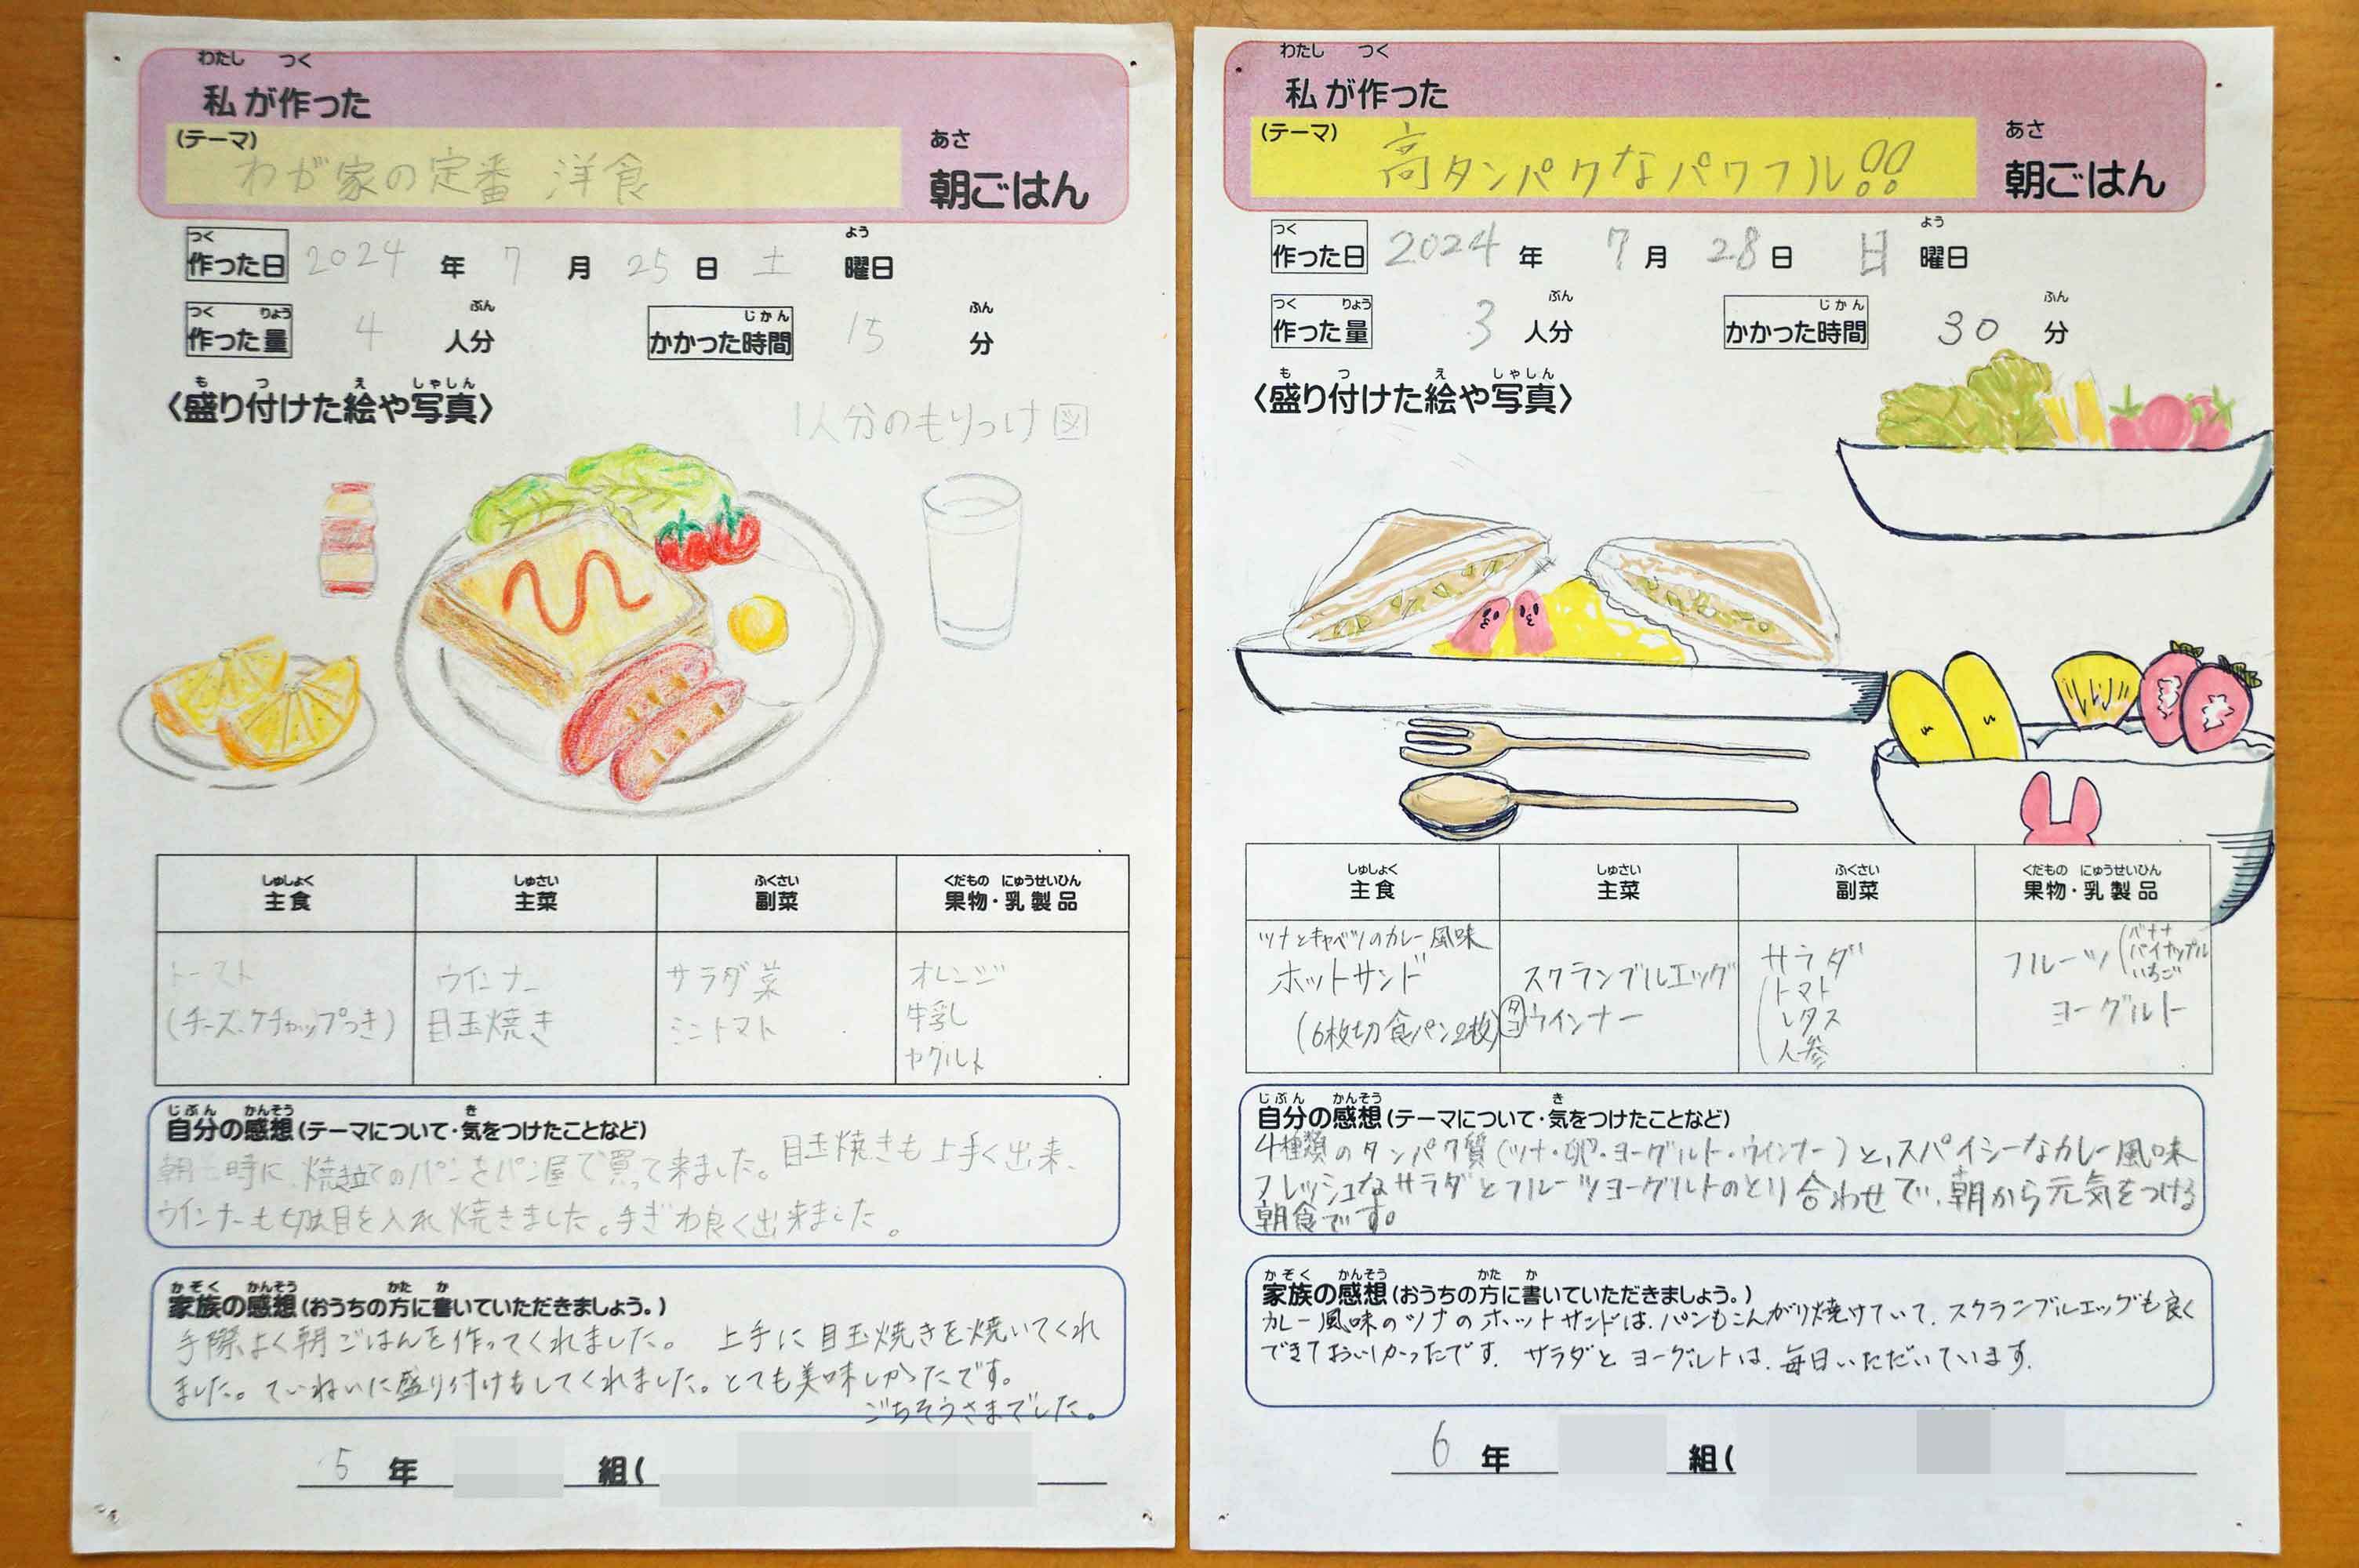 わたし つく
私が作った
(テーマ)
わが家の定番 洋食
あさ
朝ごはん
つく よう
作った日 2024 年 7 月 25 日 土 曜日
つく りょう ぶん じかん ふん
作った量 4 人分 かかった時間 15 分
も つ え しゃしん
〈盛り付けた絵や写真〉
1人分のもりつけ図
しゅしょく しゅさい ふくさい くだもの にゅうせいひん
主食 主菜 副菜 果物・乳製品
トースト
(チーズ、ケチャップつき)
ウインナー
目玉焼き
サラダ菜
ミニトマト
オレンジ
牛乳
ヤクルト
じぶん かんそう き
自分の感想(テーマについて・気をつけたことなど)
朝七時に、焼き立てのパンをパン屋で買って来ました。目玉焼きも上手く出来、
ウインナーも切れ目を入れ焼きました。手ぎわ良く出来ました。
かぞく かんそう かた か
家族の感想(おうちの方に書いていただきましょう。)
手際よく朝ごはんを作ってくれました。 上手に目玉焼きを焼いてくれ
ました。ていねいに盛り付けもしてくれました。とても美味しかったです。
ごちそうさまでした。
5 年 組(
わたし つく
私が作った
(テーマ)
高タンパクなパワフル!!
あさ
朝ごはん
つく よう
作った日 2024 年 7 月 28 日 日 曜日
つく りょう ぶん じかん ふん
作った量 3 人分 かかった時間 30 分
も つ え しゃしん
〈盛り付けた絵や写真〉
しゅしょく しゅさい ふくさい くだもの にゅうせいひん
主食 主菜 副菜 果物・乳製品
ツナとキャベツのカレー風味
ホットサンド
(6枚切食パン2枚)
スクランブルエッグ
タコウインナー
サラダ
トマト
レタス
人参
フルーツ(バナナ
パイナップル
いちご
ヨーグルト
じぶん かんそう き
自分の感想(テーマについて・気をつけたことなど)
4種類のタンパク質(ツナ・卵・ヨーグルト・ウインナー)と、スパイシーなカレー風味
フレッシュなサラダとフルーツヨーグルトのとり合わせで、朝から元気をつける
朝食です。
かぞく かんそう かた か
家族の感想(おうちの方に書いていただきましょう。)
カレー風味のツナのホットサンドは、パンもこんがり焼けていて、スクランブルエッグも良く
できておいしかったです。サラダとヨーグルトは、毎日いただいています。
6 年 組(